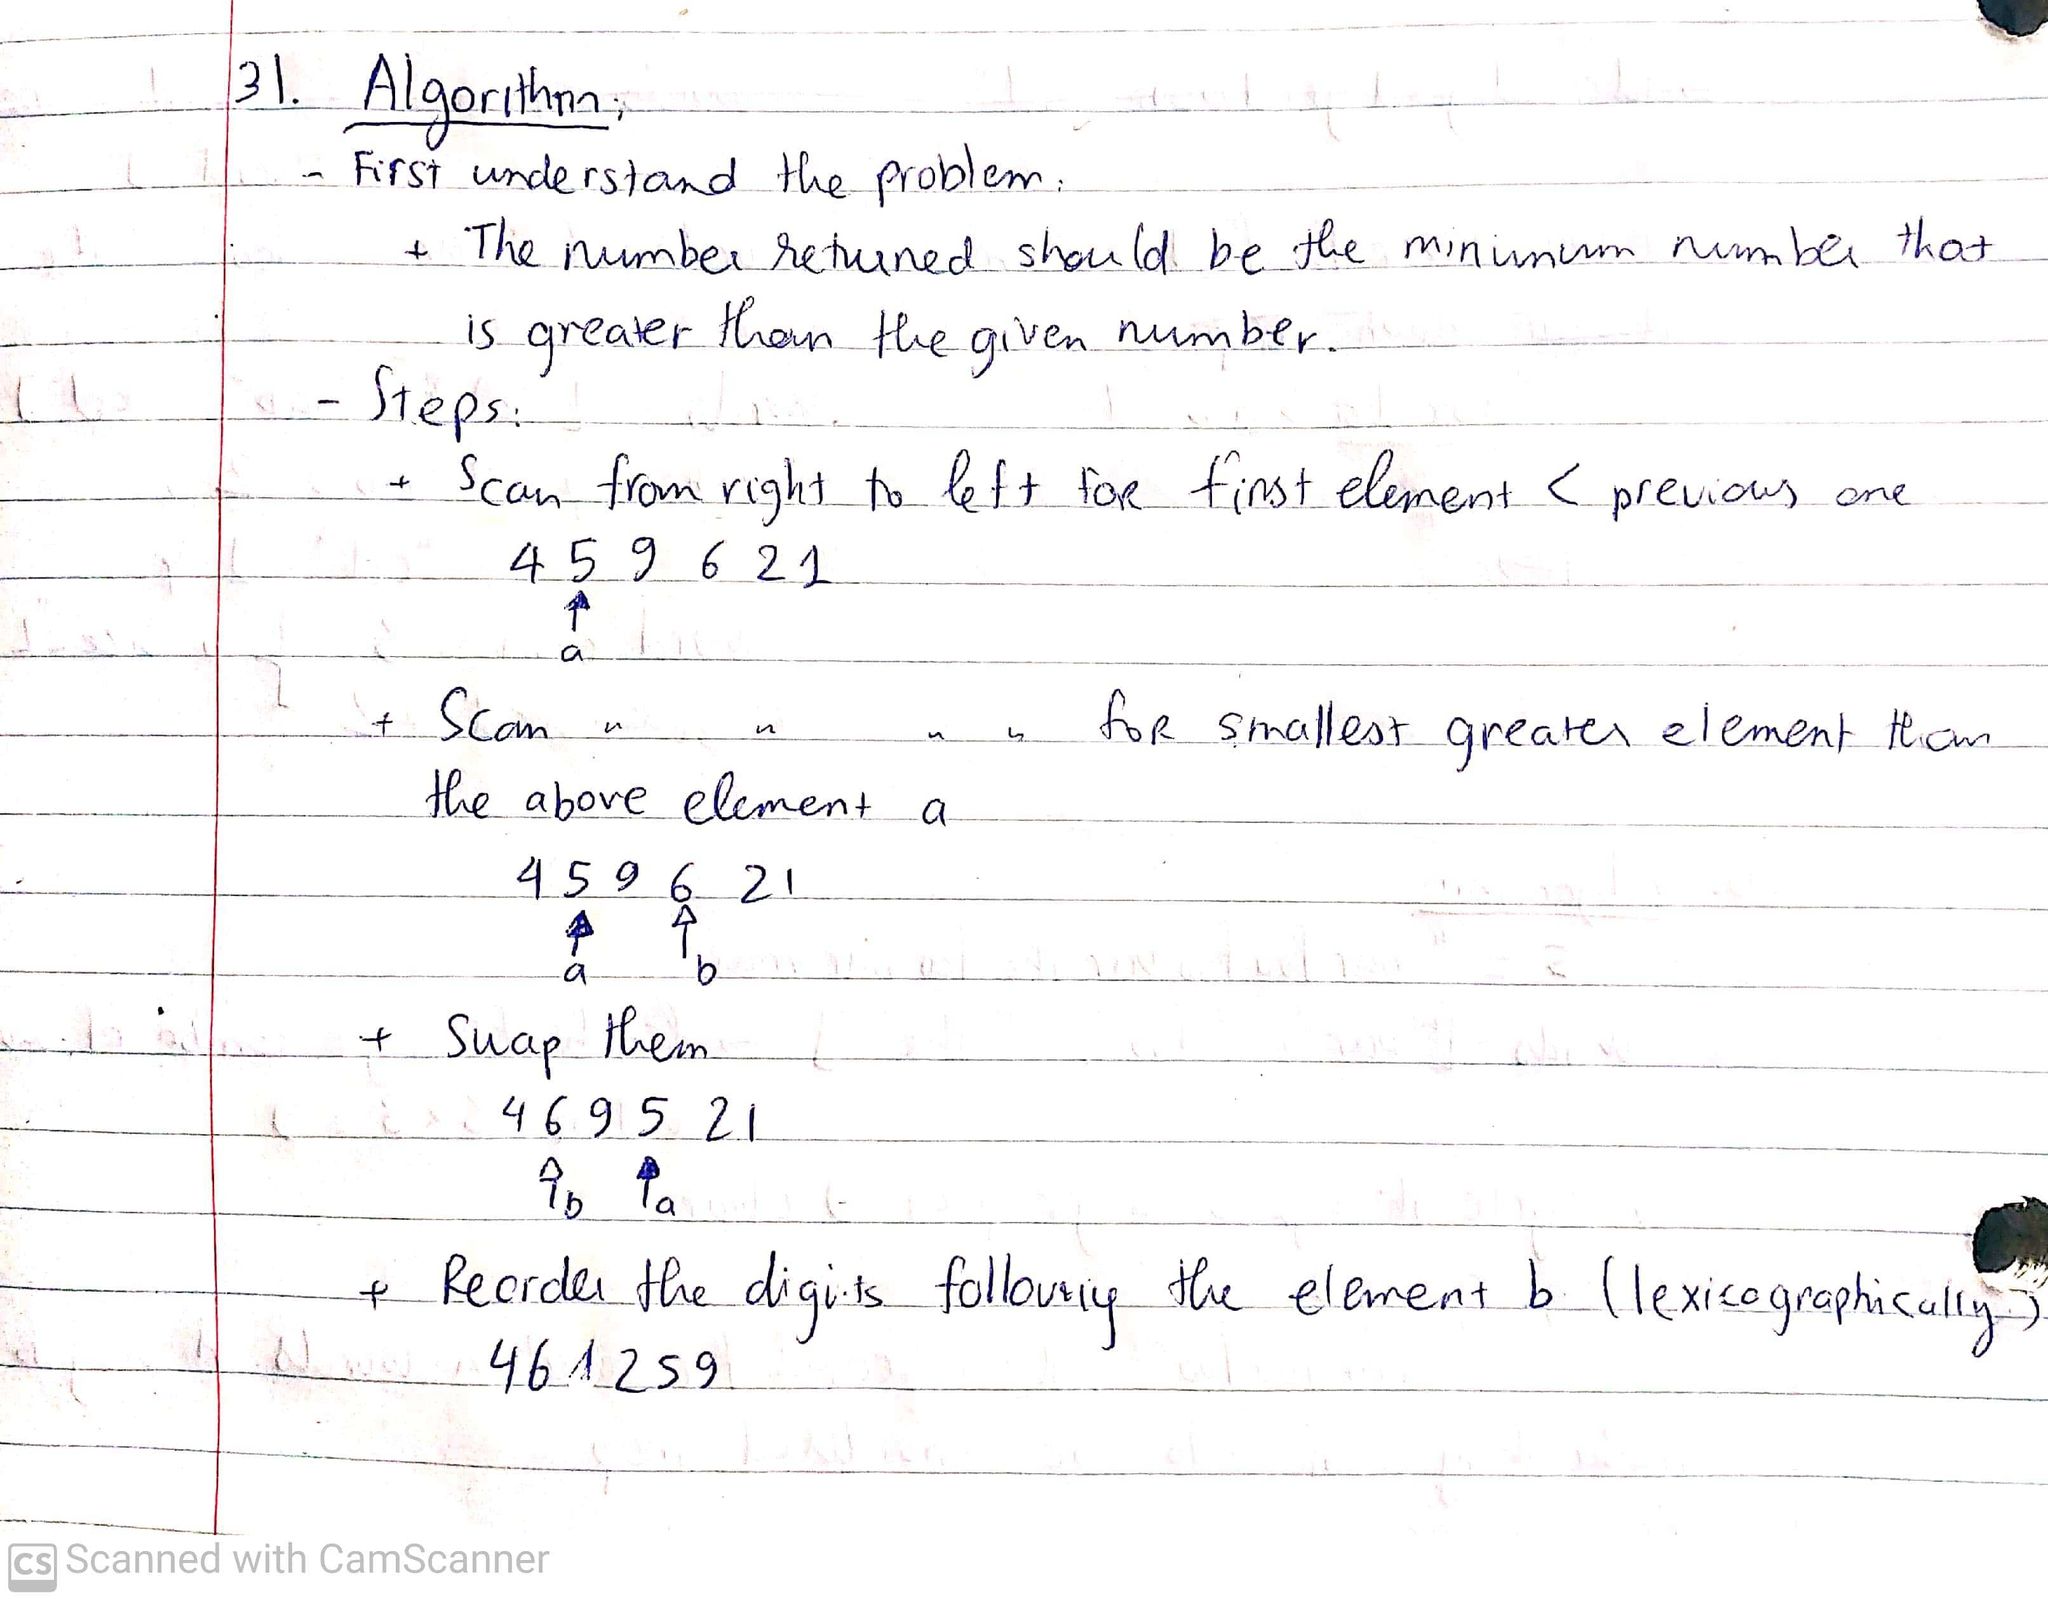 31. Algorithm:
- First understand the problem:
+ The number returned should be the minimum number that
is greater than the given number.
- Steps:
+ Scan from right to left for first element < previous one
4 5 9 6 2 1
a
+ Scan " " " " for smallest greater element than
the above element a
4 5 9 6 2 1
a b
+ Swap them
4 6 9 5 2 1
b a
+ Reorder the digits following the element b (lexicographically)
4 6 1 2 5 9
CS Scanned with CamScanner